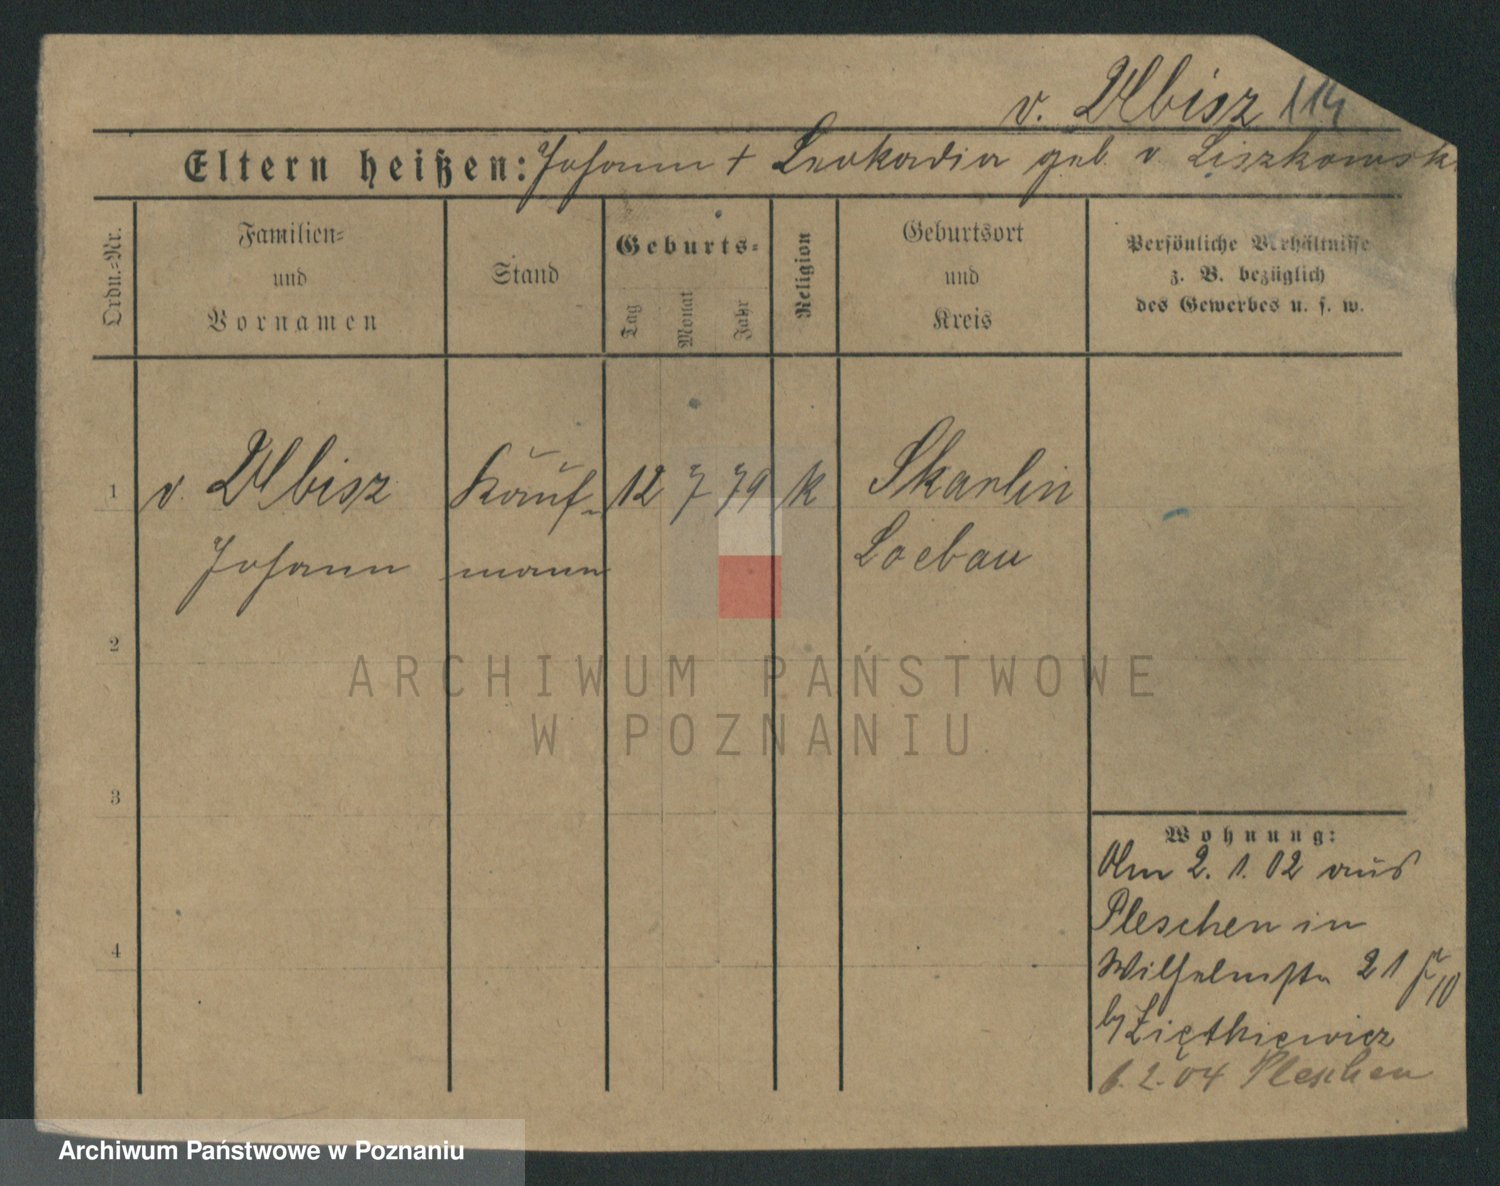 v. Ulbisz 114
Eltern heißen: Johann + Leokadia geb. v Liszkowsk
Ordn.=Nr.
Familien=
und
Vornamen
Stand
Geburts=
Tag
Monat
Jahr
Religion
Geburtsort
und
Kreis
Persönliche Verhältnisse
z. B. bezüglich
des Gewerbes u. s. w.
1 v. Ulbisz Kauf- 12 7 79 k Skarlin
Johann mann Loebau
2
3
4
Wohnung:
Am 2. 1. 02 aus
Pleschen in
Wilhelmstr 21
by Ziętkiewicz
6. 2. 04 Pleschen
ARCHIWUM PAŃSTWOWE
W POZNANIU
Archiwum Państwowe w Poznaniu